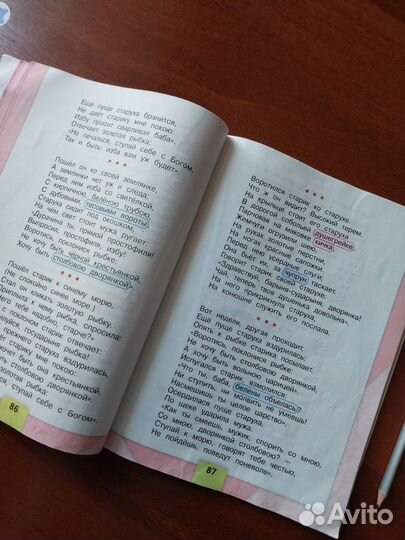 Ещё пуще старуха бранится,
Не даёт старику мне покою:
Избу просит сварливая баба».
Отвечает золотая рыбка:
«Не печалься, ступай себе с Богом,
Так и быть: изба вам уж будет».
* * *
Пошёл он ко своей землянке,
А землянки нет уж и следа;
Перед ним изба со светёлкой,
С кирпичною, белёною трубою,
С дубовыми, тесовыми вороты.
Старуха сидит под окошком,
На чём свет стоит мужа ругает:
«Дурачина ты, прямой простофиля!
Выпросил, простофиля, избу!
Воротись, поклонися рыбке:
Не хочу быть чёрной крестьянкой,
Хочу быть столбовою дворянкой».
* * *
Пошёл старик к синему морю;
(Не спокойно синее море.)
Стал он кликать золотую рыбку.
Приплыла к нему рыбка, спросила:
Чего тебе надобно, старче?»
с поклоном старик отвечает:
государыня рыбка!
прежнего старуха вздурилась,
не даёт старику мне покою:
не хочет быть она крестьянкой,
быть столбовою дворянкой».
золотая рыбка:
ступай себе с Богом».
86
Воротился старик ко старухе.
Что ж он видит? Высокий терем.
На крыльце стоит его старуха
В дорогой собольей душегрейке,
Парчовая на маковке кичка,
Жемчуги огрузили шею,
На руках золотые перстни,
На ногах красные сапожки.
Перед нею усердные слуги;
Она бьёт их, за чупрун таскает.
Говорит старик своей старухе:
«Здравствуй, барыня-сударыня дворянка!
Чай, теперь твоя душенька довольна».
На него прикрикнула старуха,
На конюшне служить его послала.
* * *
Вот неделя, другая проходит,
Ещё пуще старуха вздурилась:
Опять к рыбке старика посылает:
«Воротись, поклонися рыбке:
Не хочу быть столбовою дворянкой,
А хочу быть вольною царицей».
Испугался старик, взмолился:
«Что ты, баба, белены объелась?
Ни ступить, ни молвить не умеешь!
Насмешишь ты целое царство».
Осердилася пуще старуха,
По щеке ударила мужа.
«Как ты смеешь, мужик, спорить со мною,
Со мною, дворянкой столбовою? —
Ступай к морю, говорят тебе честью,
Не пойдёшь, поведут поневоле».
87
Avito